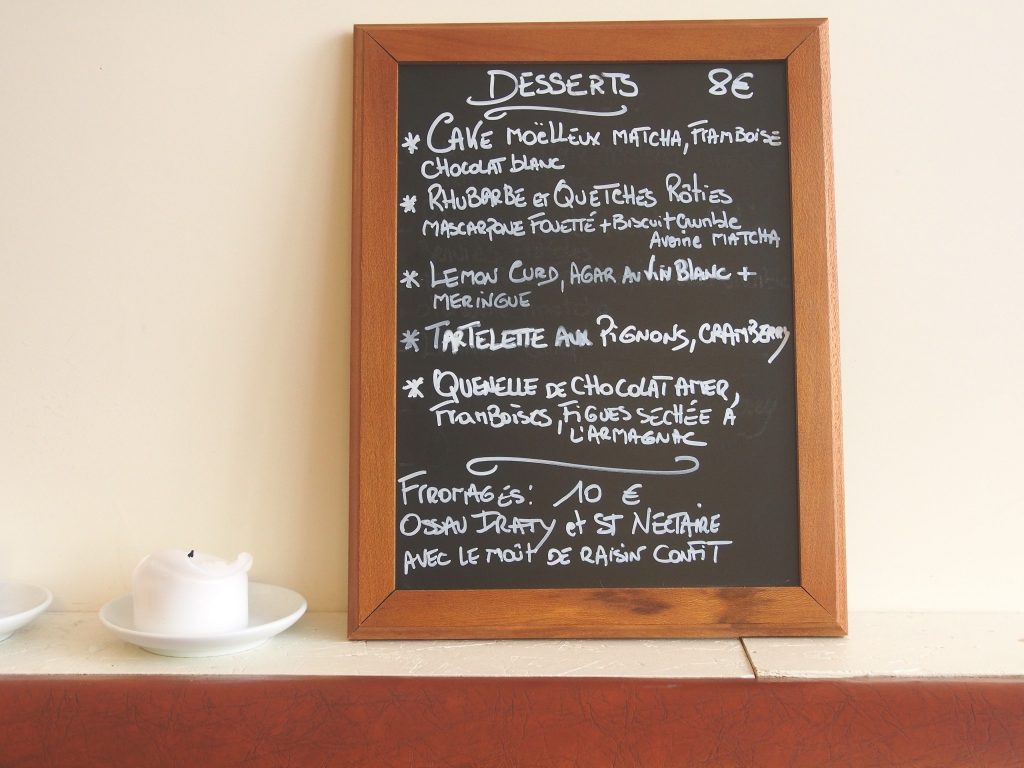 DESSERTS 8€
* CAKE MOËLLEUX MATCHA, FRAMBOISE
CHOCOLAT BLANC
* RHUBARBE ET QUETCHES RÔTIES
MASCARPONE FOUETTÉ + BISCUIT CRUMBLE
AVOINE MATCHA
* LEMON CURD, AGAR AU VIN BLANC +
MERINGUE
* TARTELETTE AUX PIGNONS, CRAMBERRY
* QUENELLE DE CHOCOLAT AMER,
FRAMBOISES, FIGUES SECHÉE À
L'ARMAGNAC
FROMAGES: 10 €
OSSAU IRATY et ST NECTAIRE
AVEC LE MOÛT DE RAISIN CONFIT